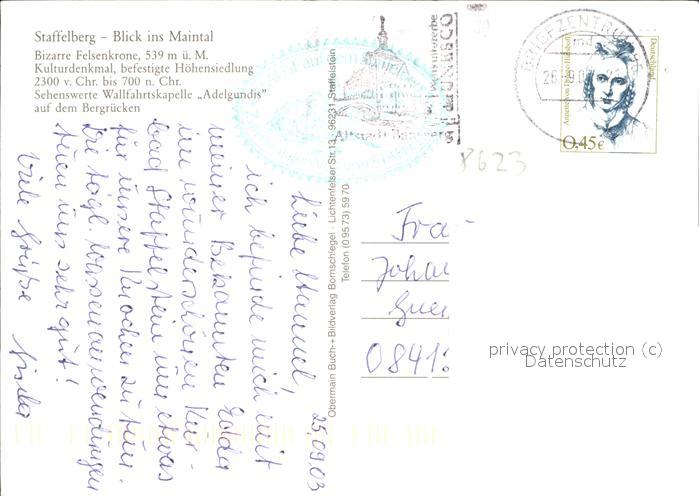 Staffelberg – Blick ins Maintal
Bizarre Felsenkrone, 539 m ü. M.
Kulturdenkmal, befestigte Höhensiedlung
2300 v. Chr. bis 700 n. Chr.
Sehenswerte Wallfahrtskapelle „Adelgundis"
auf dem Bergrücken
25.09.03
Liebe Hannel,
ich befinde mich mit
meiner Bekannten Edda
im wunderschönen Kur-
bad Staffelstein um etwas
für unsere Knochen zu tun.
Die tägl. Wasseranwendungen
tuen uns sehr gut!
Viele Grüße
Obermain Buch-+ Bildverlag Bornschlegel · Lichtenfelser Str. 13 · 96231 Staffelstein
Telefon (0 95 73) 59 70
UNESCO
Altstadt Bamberg
BRIEFZENTRUM
Deutschland
Annette von Droste-Hülshoff
0,45 €
8623
Fra
Joha
0841
privacy protection (c)
Datenschutz